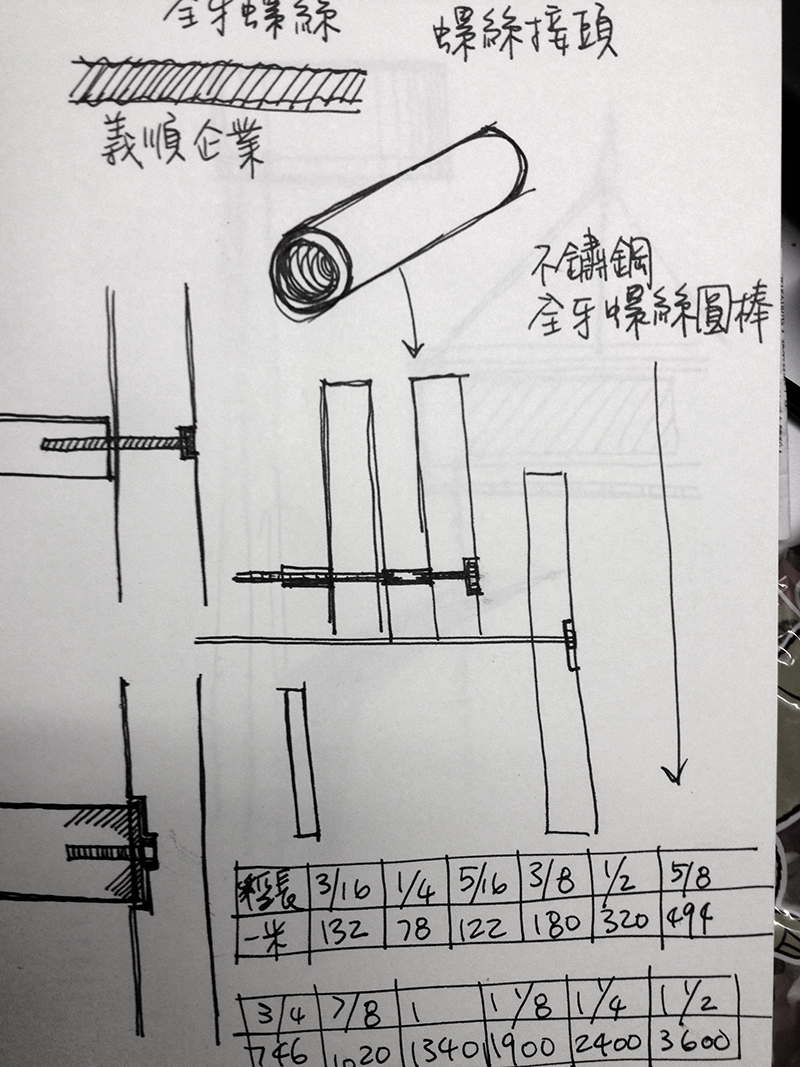 全牙螺絲
螺絲接頭
義順企業
不鏽鋼
全牙螺絲圓棒
徑長 3/16 1/4 5/16 3/8 1/2 5/8
一米 132 78 122 180 320 494
3/4 7/8 1 1 1/8 1 1/4 1 1/2
746 1020 1340 1900 2400 3600